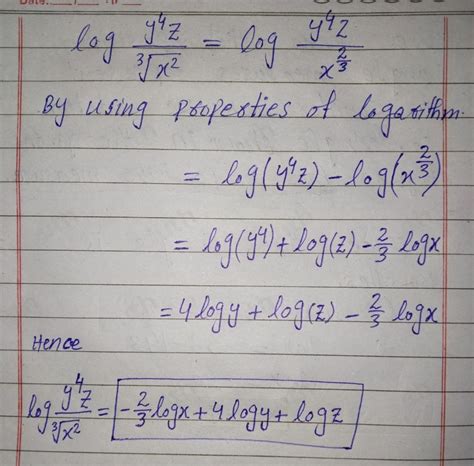 log y⁴z / ∛x² = log y⁴z / x^(2/3)
By using properties of logarithm.
= log(y⁴z) - log(x^(2/3))
= log(y⁴) + log(z) - 2/3 logx
= 4 logy + log(z) - 2/3 logx
Hence
log y⁴z / ∛x² = -2/3 logx + 4 logy + logz